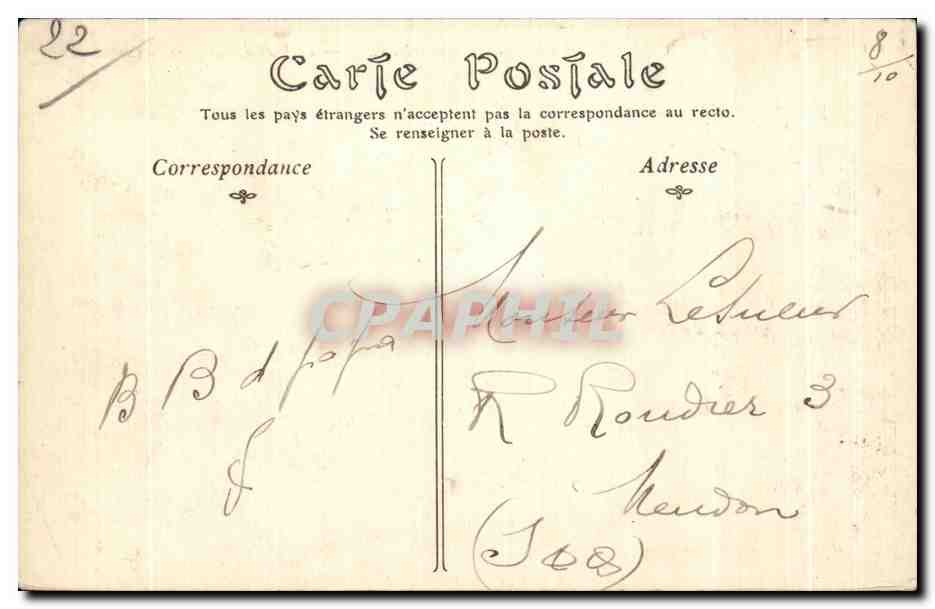 22
8/10
Carte Postale
Tous les pays étrangers n'acceptent pas la correspondance au recto.
Se renseigner à la poste.
Correspondance
Adresse
CPAPHIL
B B d papa
Monsieur Lesueur
R Roudier 3
Meudon
(S & O)